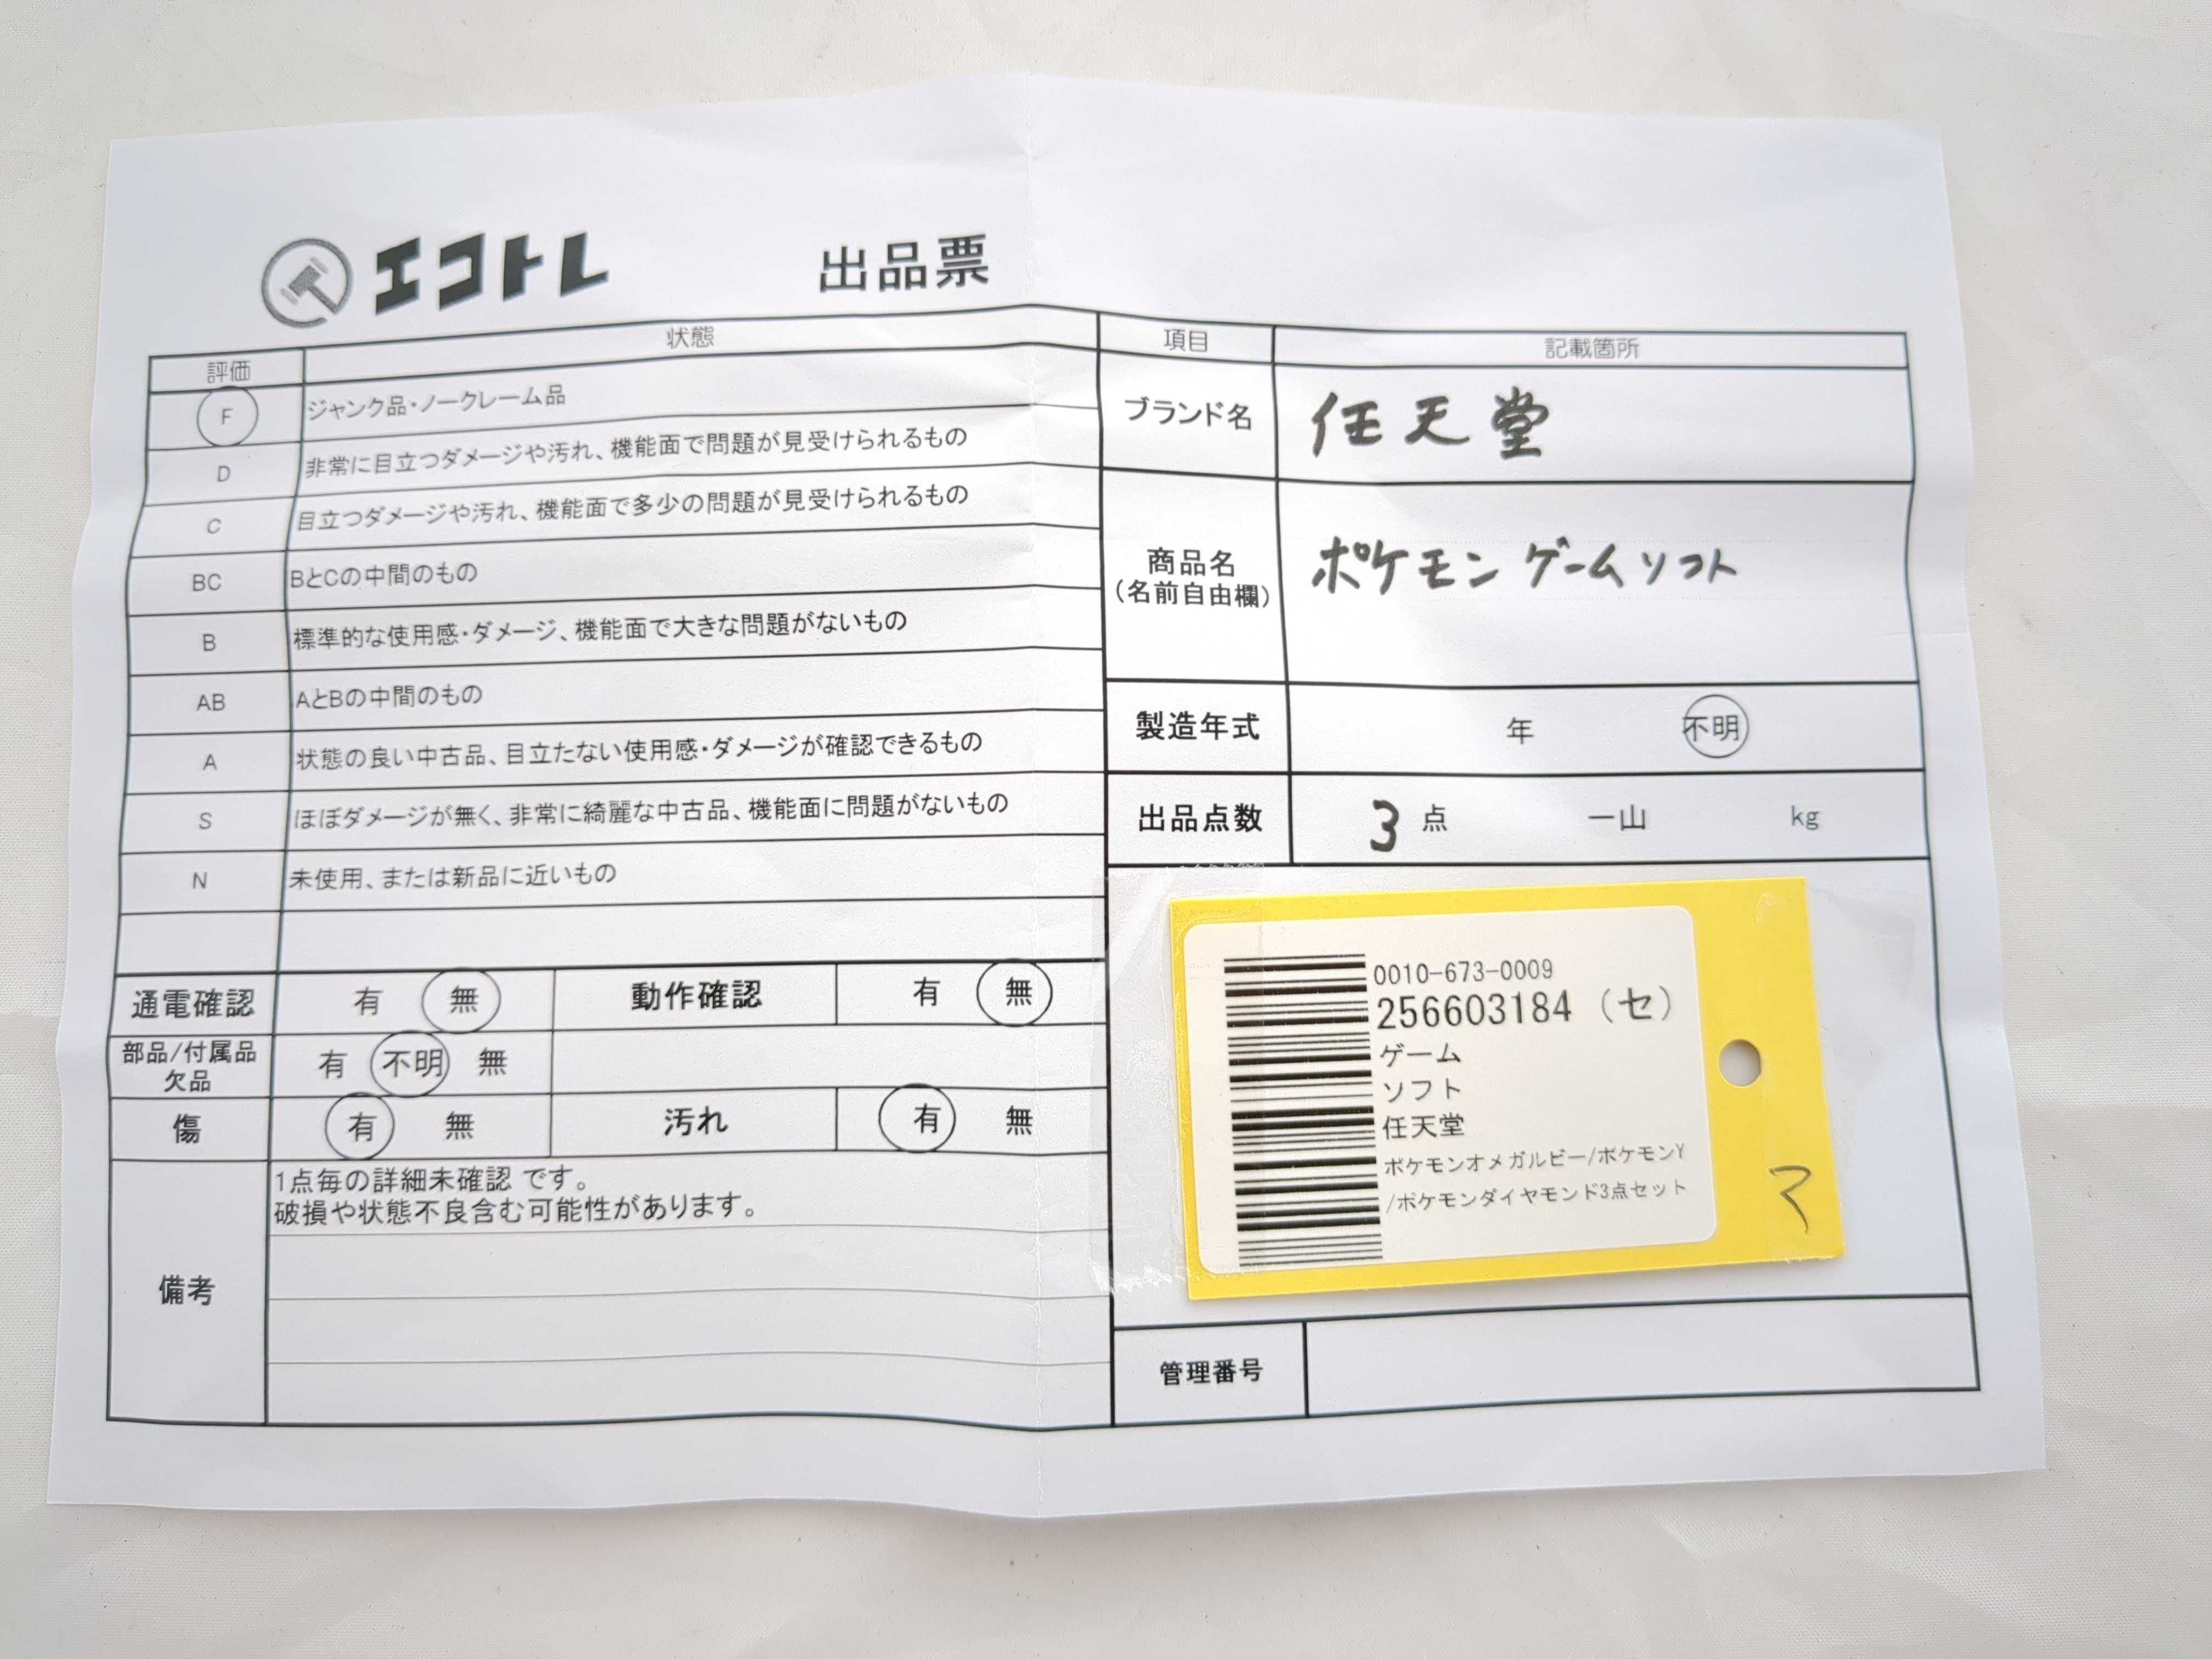 エコトレ 出品票
評価 状態
F ジャンク品・ノークレーム品
D 非常に目立つダメージや汚れ、機能面で問題が見受けられるもの
C 目立つダメージや汚れ、機能面で多少の問題が見受けられるもの
BC BとCの中間のもの
B 標準的な使用感・ダメージ、機能面で大きな問題がないもの
AB AとBの中間のもの
A 状態の良い中古品、目立たない使用感・ダメージが確認できるもの
S ほぼダメージが無く、非常に綺麗な中古品、機能面に問題がないもの
N 未使用、または新品に近いもの
通電確認 有 無 動作確認 有 無
部品/付属品
欠品 有 不明 無
傷 有 無 汚れ 有 無
備考
1点毎の詳細未確認 です。
破損や状態不良含む可能性があります。
項目 記載箇所
ブランド名 任天堂
商品名
(名前自由欄)
ポケモンゲームソフト
製造年式 年 不明
出品点数 3 点 一山 kg
0010-673-0009
256603184 (セ)
ゲーム
ソフト
任天堂
ポケモンオメガルビー/ポケモンY
/ポケモンダイヤモンド3点セット
マ
管理番号